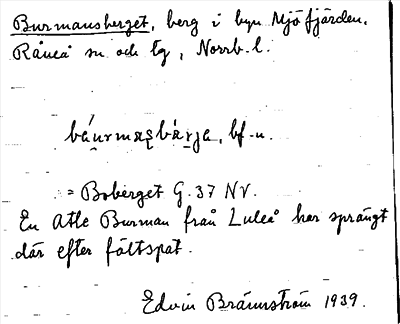 Burmansberget, berg i byn Mjöfjärden.
Råneå sn och tg, Norrb. l.
bf. u.
= Boberget G. 37 NV.
En Atle Burman från Luleå har sprängt
där efter fältspat.
Edvin Brännström 1939.